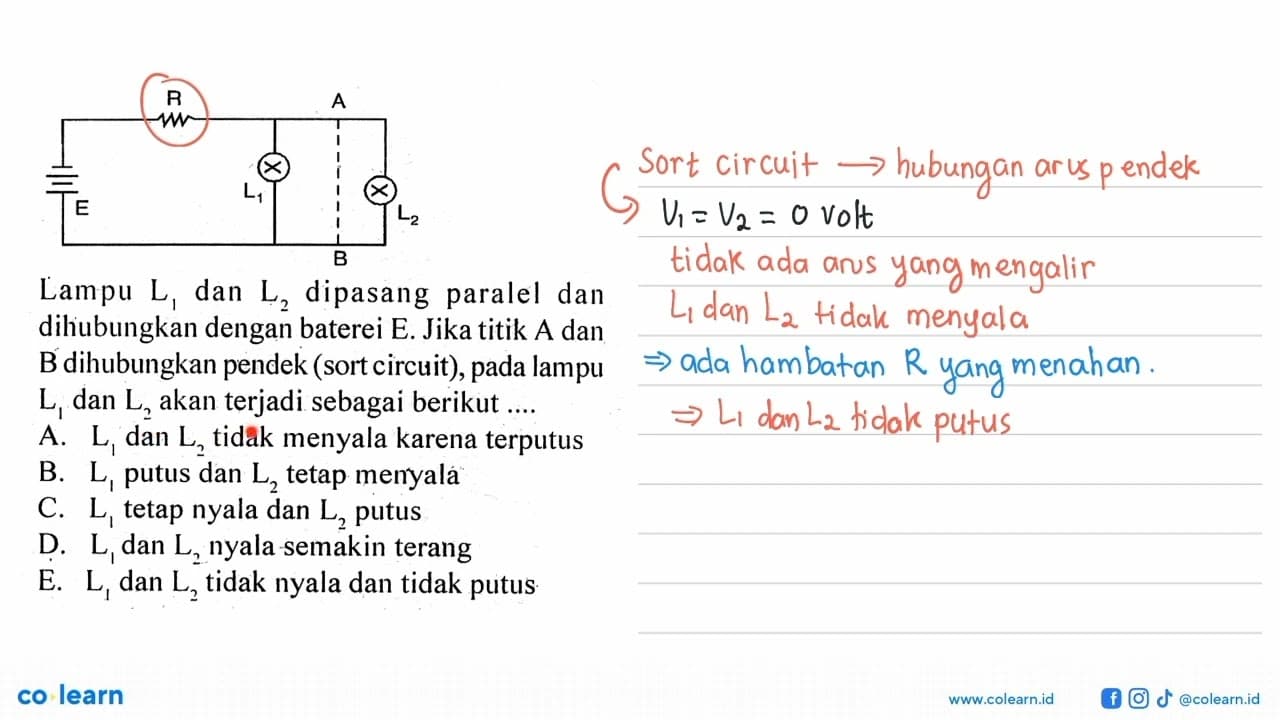 R
A
L₁
E
L₂
B
Lampu L₁ dan L₂ dipasang paralel dan
dihubungkan dengan baterei E. Jika titik A dan
B dihubungkan pendek (sort circuit), pada lampu
L₁ dan L₂ akan terjadi sebagai berikut ....
A. L₁ dan L₂ tidak menyala karena terputus
B. L₁ putus dan L₂ tetap menyala
C. L₁ tetap nyala dan L₂ putus
D. L₁ dan L₂ nyala semakin terang
E. L₁ dan L₂ tidak nyala dan tidak putus
Sort circuit → hubungan arus pendek
V₁ = V₂ = 0 volt
tidak ada arus yang mengalir
L₁ dan L₂ tidak menyala
⇒ ada hambatan R yang menahan.
⇒ L₁ dan L₂ tidak putus
co learn
www.colearn.id
@colearn.id